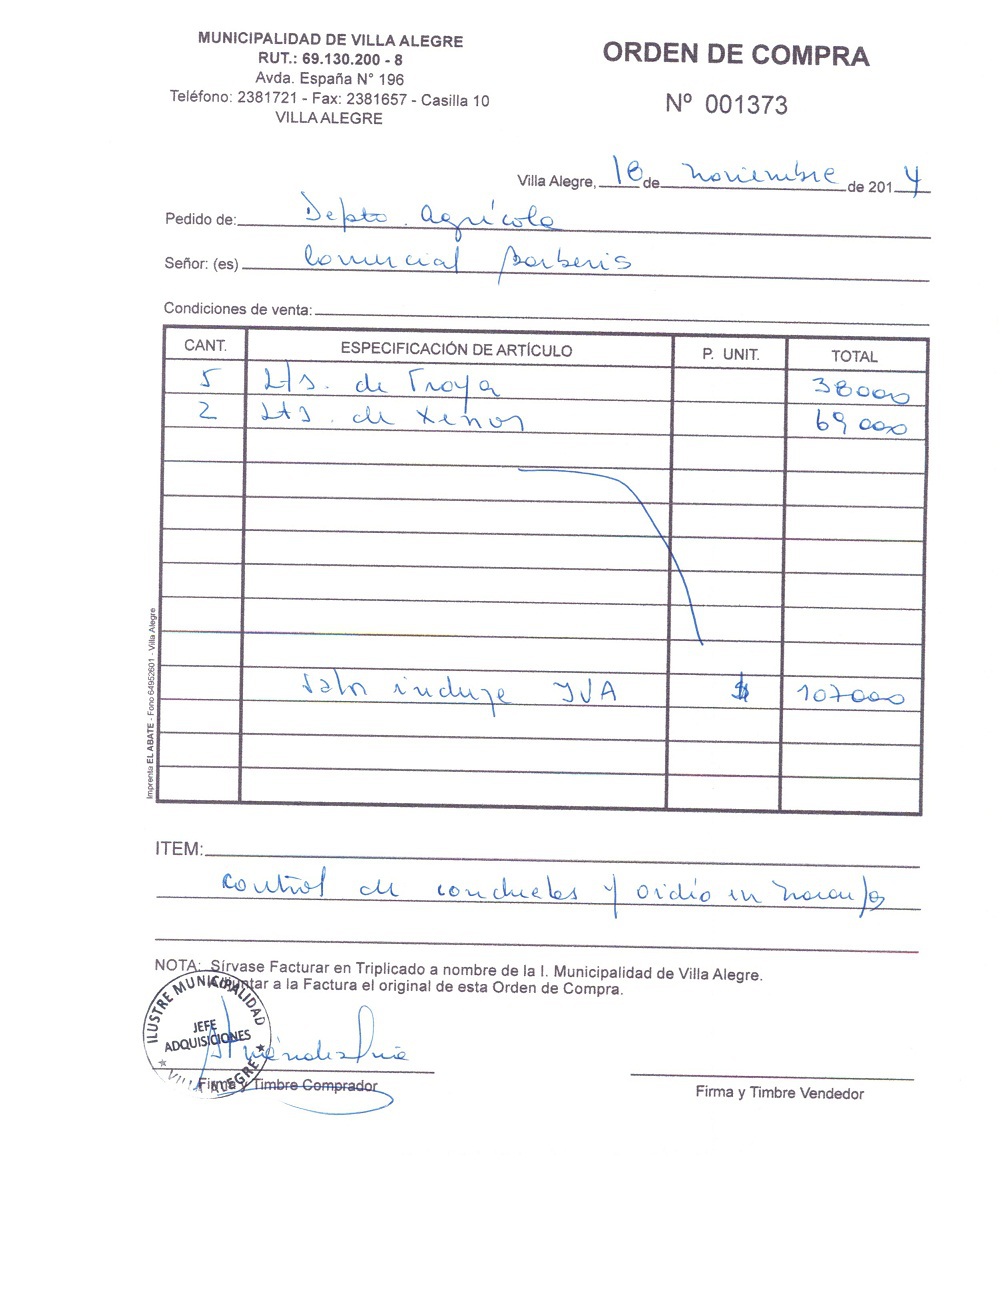 MUNICIPALIDAD DE VILLA ALEGRE
RUT.: 69.130.200 - 8
Avda. España N° 196
Teléfono: 2381721 - Fax: 2381657 - Casilla 10
VILLA ALEGRE
ORDEN DE COMPRA
Nº 001373
Villa Alegre, 18 de noviembre de 2014
Pedido de: Depto. Agrícola
Señor: (es) Comercial Barberis
Condiciones de venta:
CANT. ESPECIFICACIÓN DE ARTÍCULO P. UNIT. TOTAL
5 Lts. de Troya 38000
2 Lts. de Xenos 69000
Valor incluye IVA $ 107000
Imprenta EL ABATE - Fono 64952601 - Villa Alegre
ITEM:
control de conchuelas y oidio en
NOTA: Sírvase Facturar en Triplicado a nombre de la I. Municipalidad de Villa Alegre.
a la Factura el original de esta Orden de Compra.
ILUSTRE MUNICIPALIDAD
JEFE
ADQUISICIONES
★ VILLA ALEGRE ★
Firma y Timbre Comprador
Firma y Timbre Vendedor